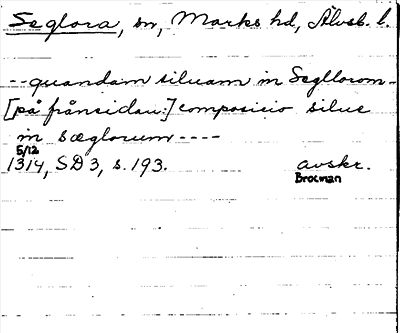 Seglora, sn, Marks hd, Älvsb. l.
--quandam siluam in Segllorom-
[på frånsidan:] composicio silue
in sæglorum ----
5/12
1314, SD 3, s. 193. avskr.
Brocman